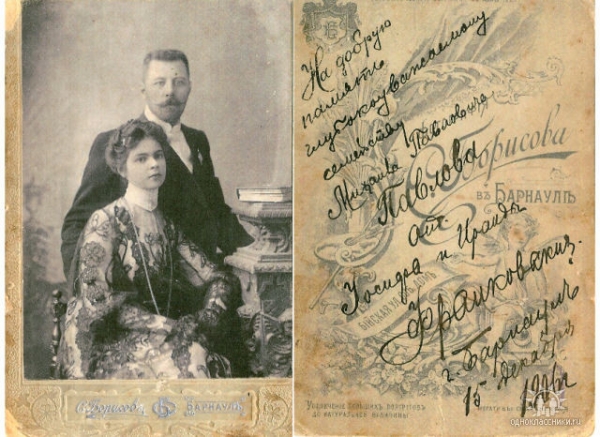 С. Борисовъ
БАРНАУЛЪ
На добрую
память
глубокоуважаемому
семейству
Михаила Павловича
Павлова
от
и Ираиды
г. Барнаулъ
15 декабря
Борисова
въ БАРНАУЛѢ
Увеличеніе большихъ портретовъ
до натуральной величины
одноклассники.ru